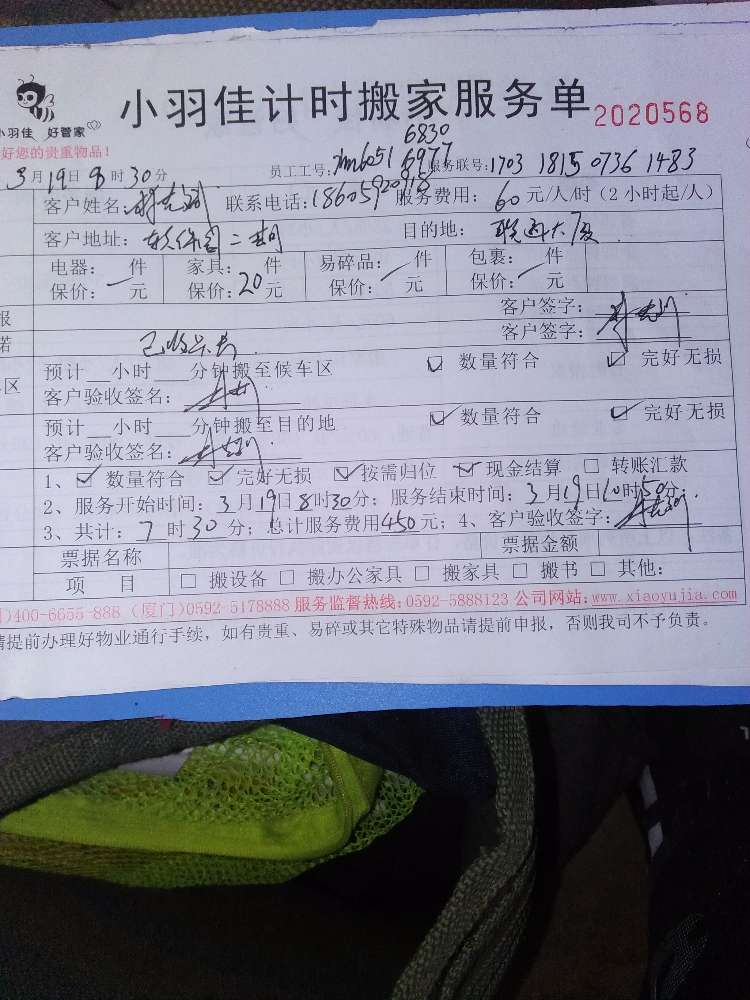 小羽佳计时搬家服务单 2020568
小羽佳 好管家
好您的贵重物品！
6830
员工工号： 6051 6977 服务联号：1703 1815 0736 1483
3月19日8时30分
客户姓名： 联系电话：18605920915 服务费用：60元/人/时（2小时起/人）
客户地址：软件园二期 目的地：联通大厦
电器： 件 家具： 件 易碎品： 件 包裹： 件
保价： 元 保价：20元 保价： 元 保价： 元
报 客户签字：
诺 客户签字：
预计__小时___分钟搬至候车区 ☑ 数量符合 ☑ 完好无损
区 客户验收签名：
预计__小时___分钟搬至目的地 ☑ 数量符合 ☑ 完好无损
客户验收签名：
1、☑ 数量符合 ☑ 完好无损 ☑ 按需归位 ☑ 现金结算 □ 转账汇款
2、服务开始时间：3月19日8时30分；服务结束时间：3月19日10时50分；
3、共计：7时30分；总计服务费用450元；4、客户验收签字：
票据名称 票据金额
项 目 □ 搬设备 □ 搬办公家具 □ 搬家具 □ 搬书 □ 其他：
)400-6655-888 (厦门)0592-5178888 服务监督热线:0592-5888123 公司网站:www.xiaoyujia.com
请提前办理好物业通行手续，如有贵重、易碎或其它特殊物品请提前申报，否则我司不予负责。